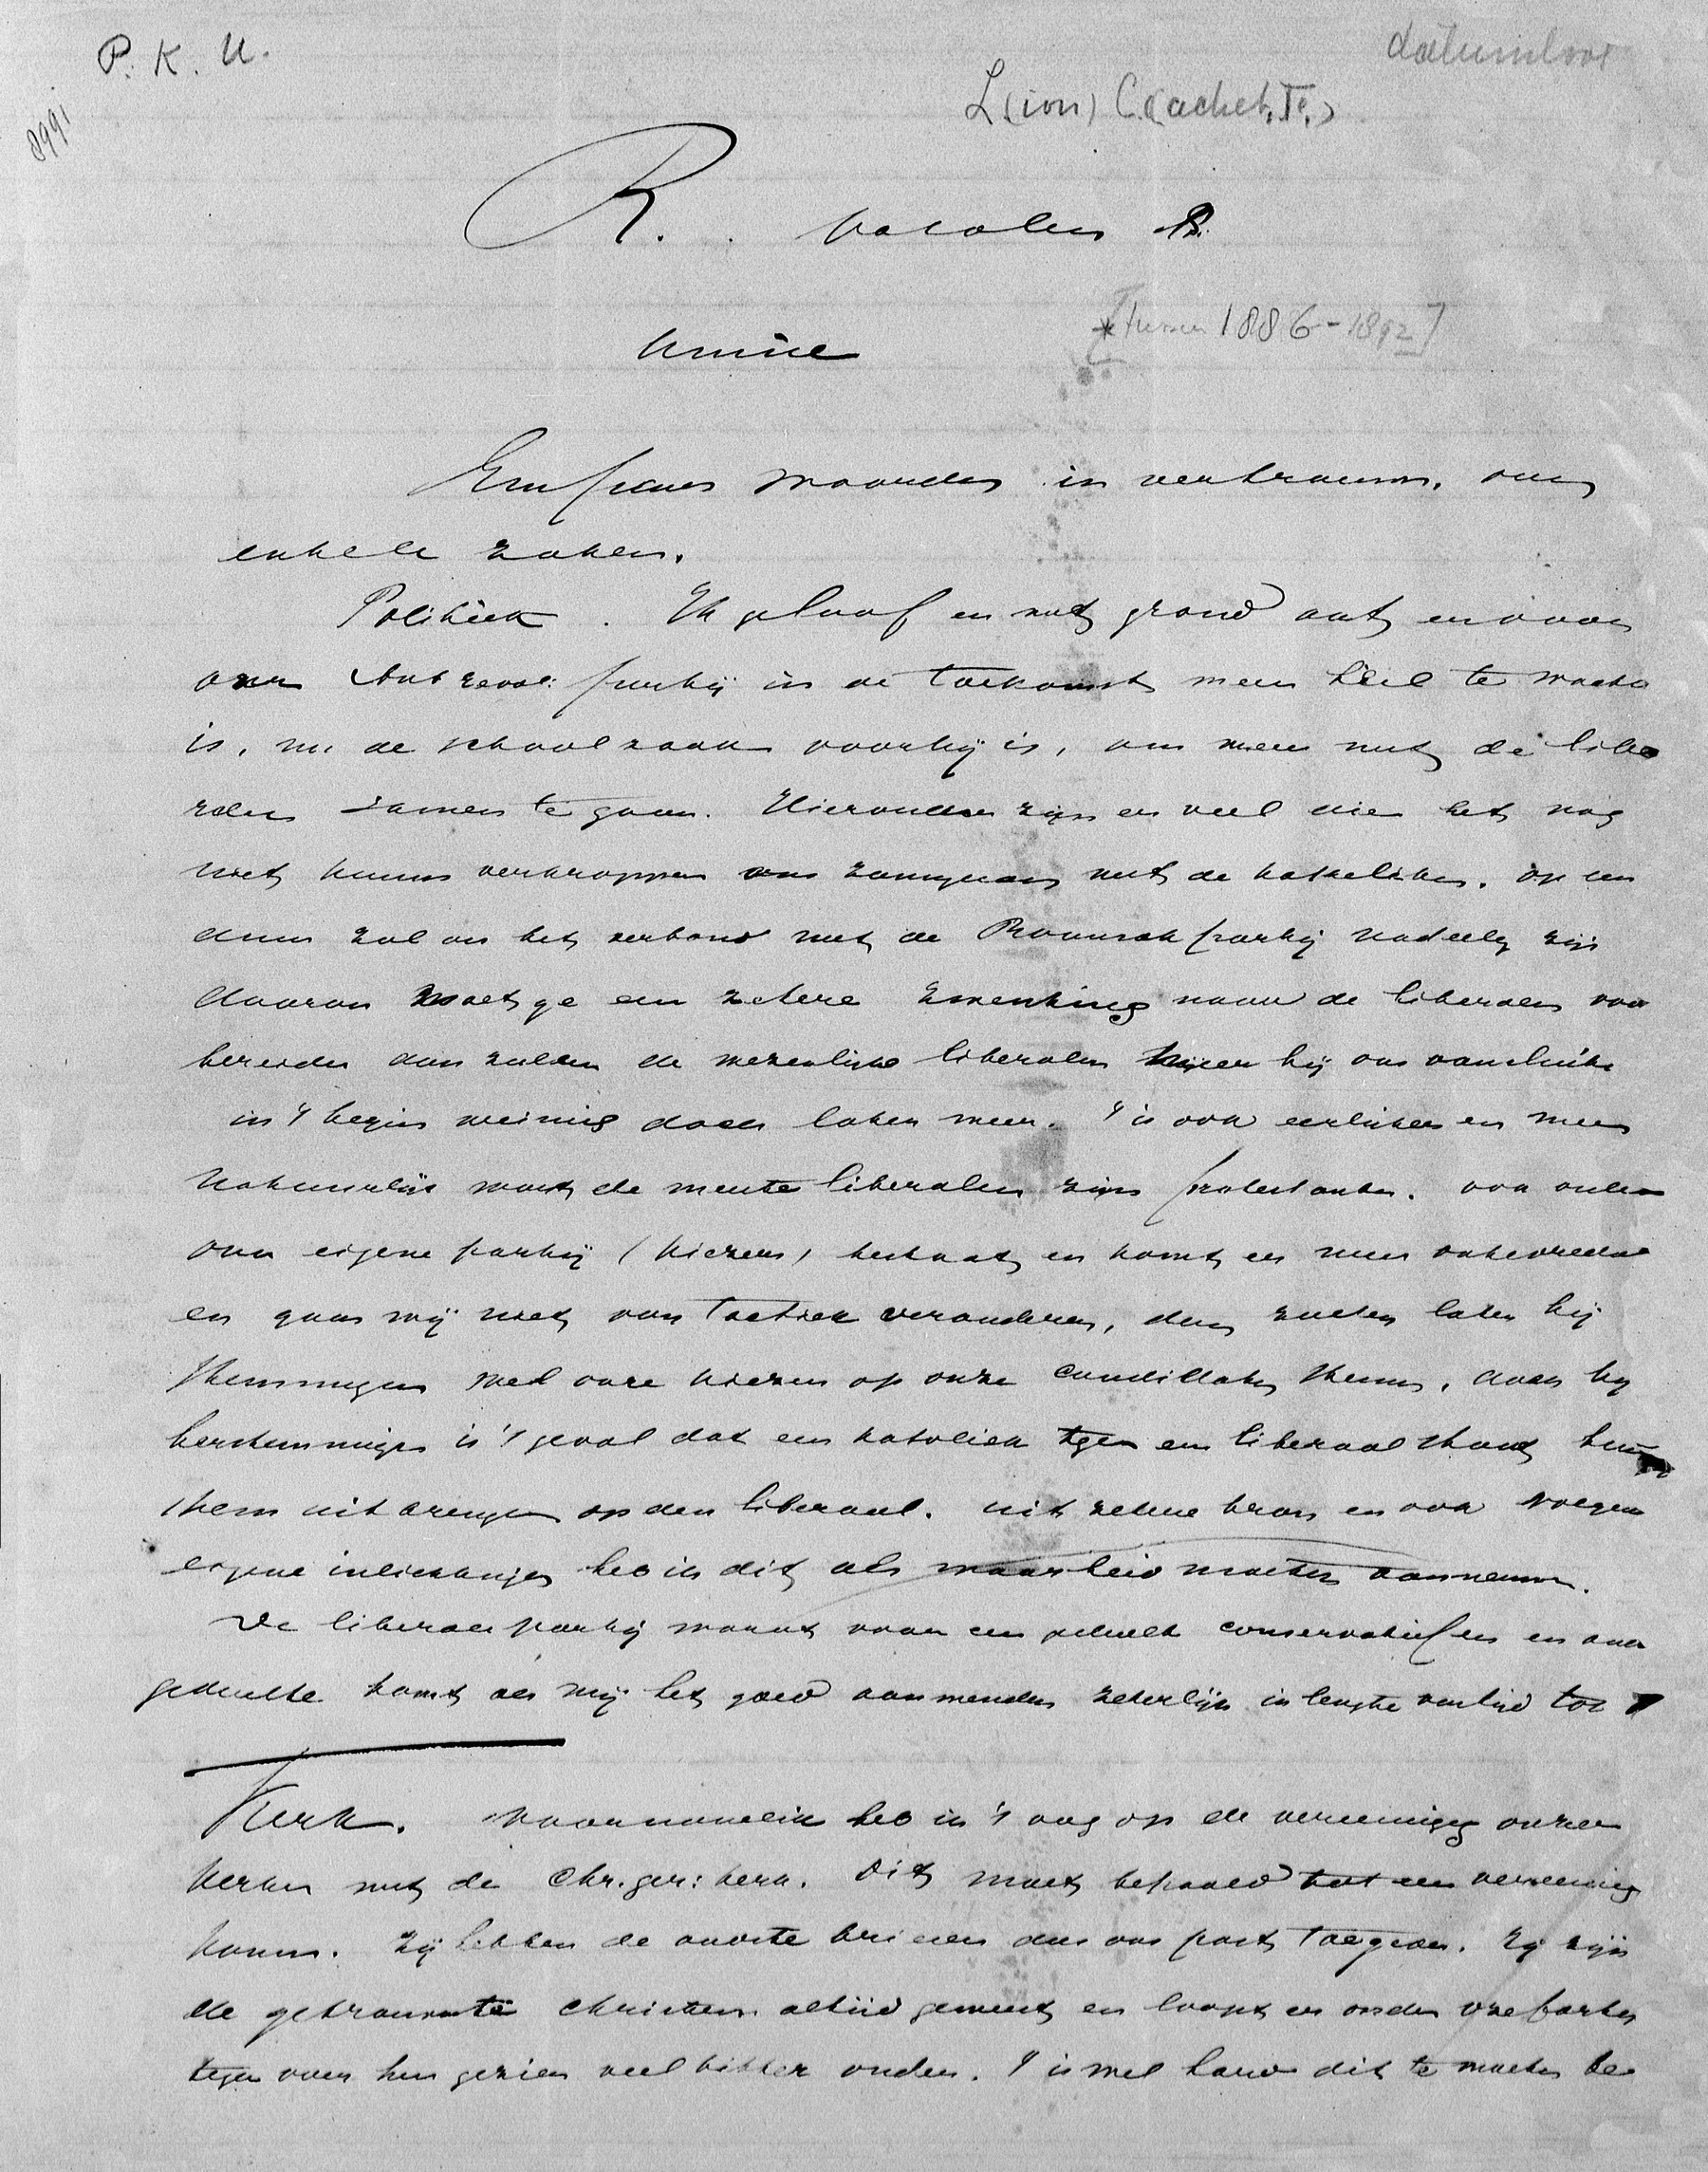 P. K. U.
datumloos
8991
L(ion) C(achet, F.)
R.
[tussen 1886-1892]
Amice
Een paar woorden in vertrouwen, over
enkele zaken.
Politiek. Ik geloof en met grond dat er voor
onze Antirevol: partij in de toekomst meer heil te wachten
is, nu de schoolzaak voorbij is, om meer met de libe
ralen samen te gaan. Hieronder zijn er veel die het nog
niet kunnen verkroppen ons zamengaan met de katholieken. op een
duur zal ons het verbond met de Roomsche partij nadeelig zijn
daarom moet ge een zekere zwenking naar de liberalen voor
bereiden dan zullen de wezenlijke liberalen zich bij ons aansluiten
in 't begin weinig doch later meer. 't is ook eerlijker en meer
Natuurlijk want de meeste liberalen zijn protestanten. ook onder
onze eigene partij (kiezers) bestaat en komt er meer ontevredenheid
en gaan wij niet van Tactiek veranderen, dan zullen later bij
stemmingen wel onze kiezers op onze candidaten stemmen, doch bij
herstemmingen in 't geval dat een katholiek tegen een liberaal staat hun
stem uitbrengen op den liberaal. uit zekere bron en ook wegens
eigene inlichtingen heb ik dit als waarheid moeten aannemen.
De liberale partij wordt voor een gedeelte conservatief en een ander
gedeelte komt als wij het goed aanwenden zekerlijk in lengte van tijd tot
Kerk. Voornamelijk heb ik 't oog op de vereeniging onzer
kerken met de Chr. ger: kerk. Dit moet bepaald tot een vereeniging
komen. Zij hebben de oudste brieven dus ons past toegeven. Zij zijn
de getrouwste christenen altijd geweest en loopt er onder onze partij
tegen over hun gezien veel bitter onder. 't is wel hard dit te moeten be